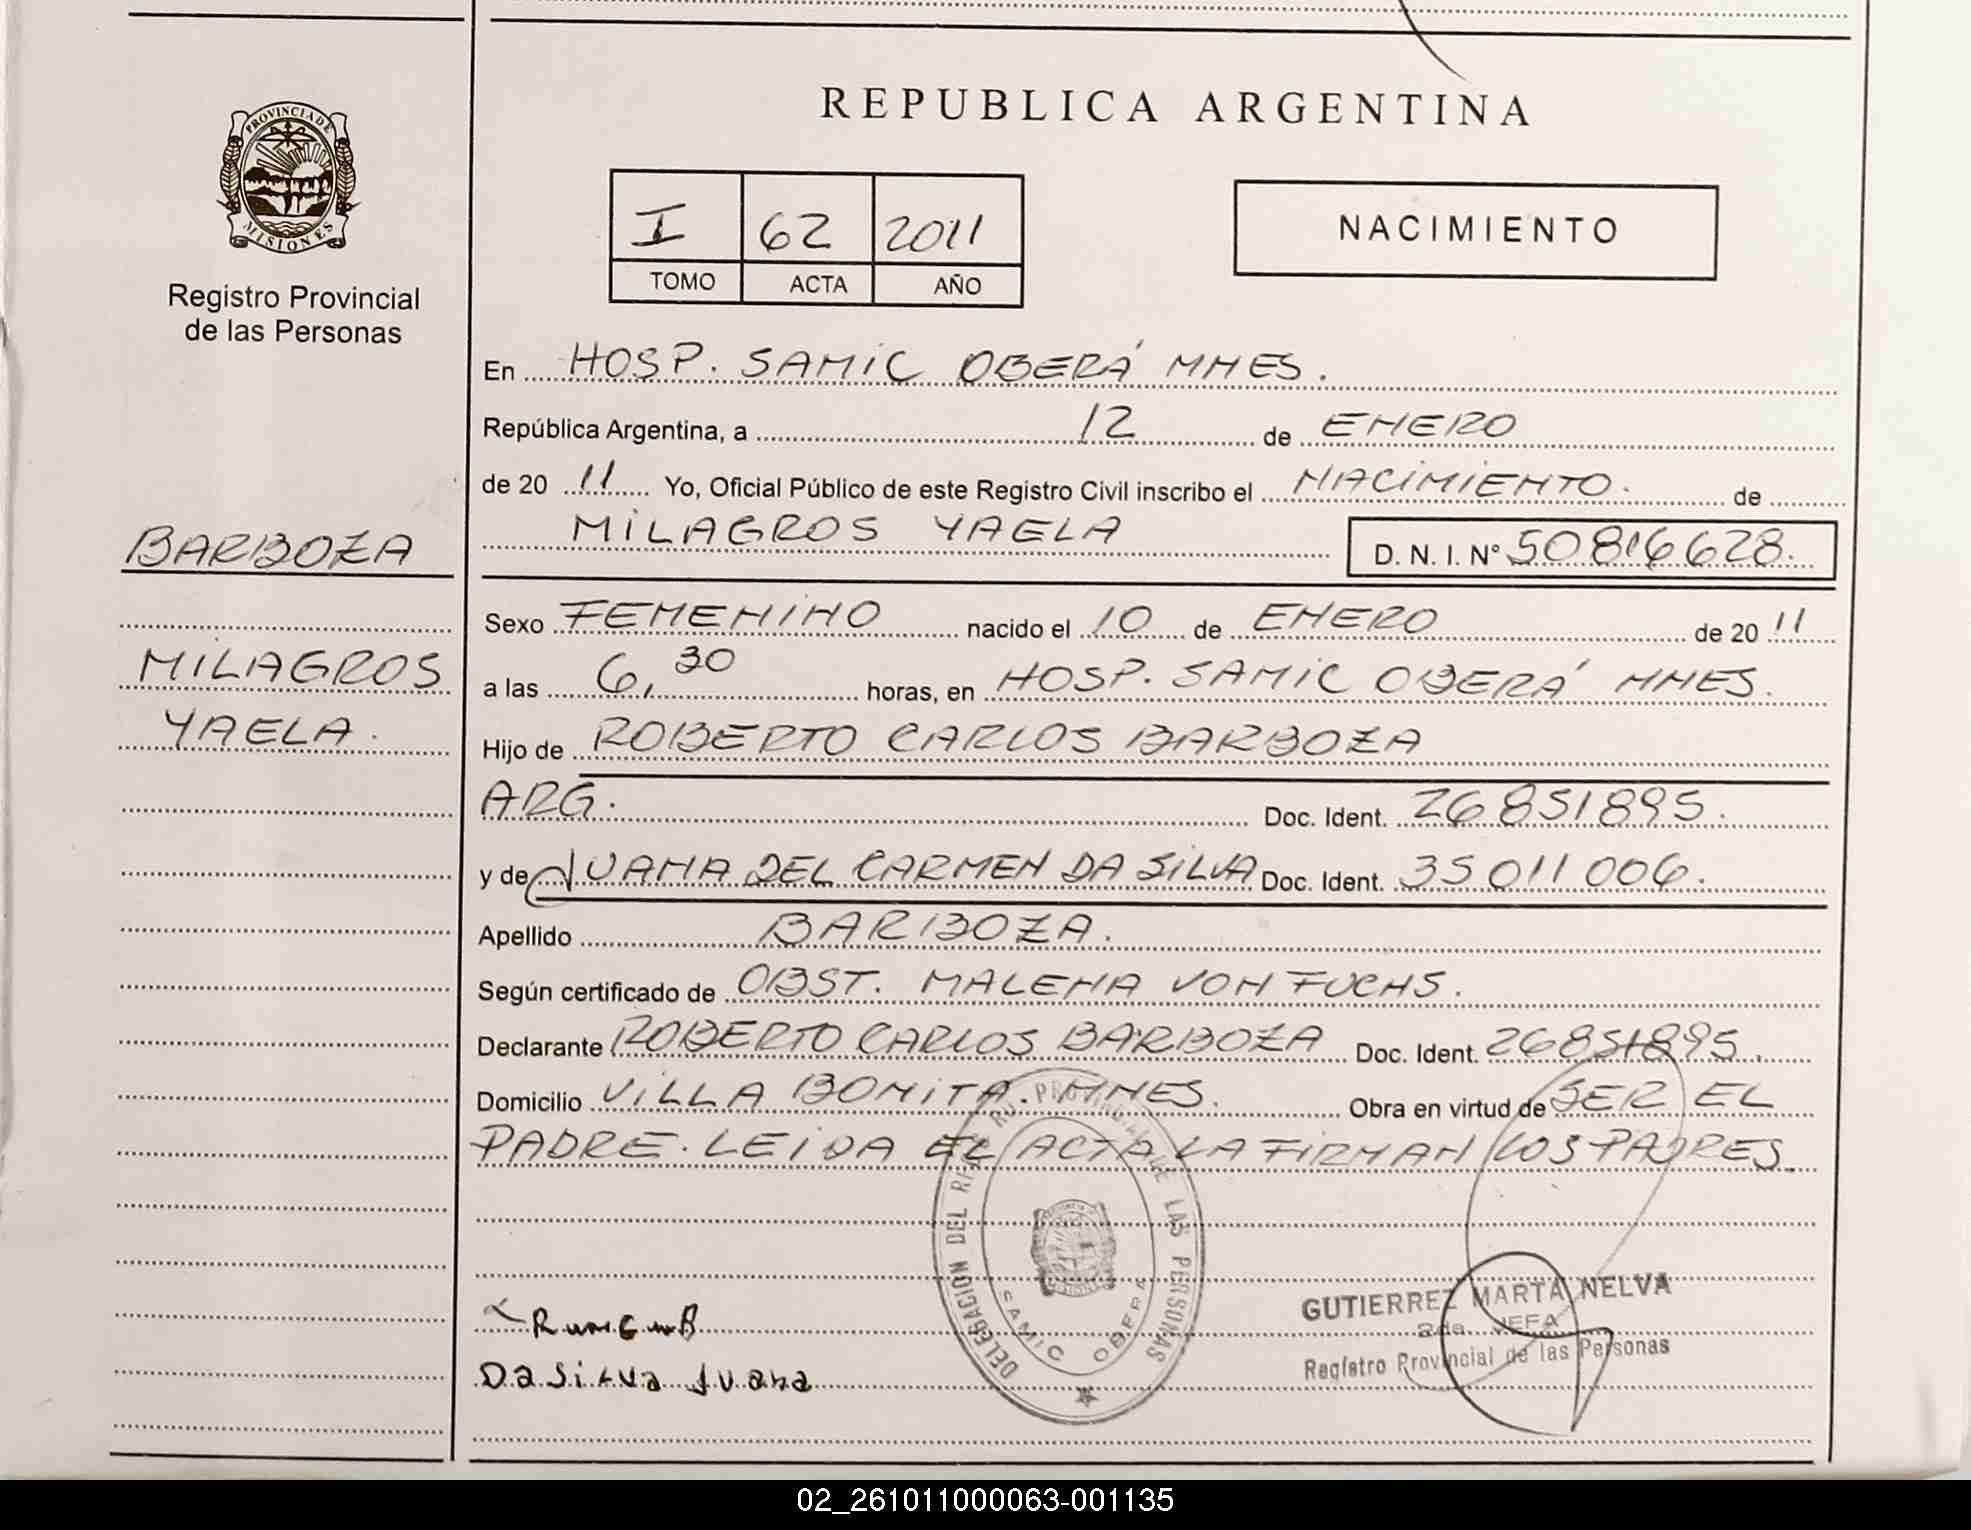 REPUBLICA ARGENTINA
PROVINCIA DE
MISIONES
Registro Provincial
de las Personas
I 62 2011
TOMO ACTA AÑO
NACIMIENTO
En HOSP. SAMIC OBERÁ MNES.
República Argentina, a 12 de ENERO
de 20 11 Yo, Oficial Público de este Registro Civil inscribo el NACIMIENTO. de
MILAGROS YAELA D. N. I. Nº 50816628.
BARBOZA
MILAGROS
YAELA.
Sexo FEMENINO nacido el 10 de ENERO de 20 11
a las 6,30 horas, en HOSP. SAMIC OBERÁ MNES.
Hijo de ROBERTO CARLOS BARBOZA
ARG. Doc. Ident. 26851895.
y de JUANA DEL CARMEN DA SILVA Doc. Ident. 35011006.
Apellido BARBOZA.
Según certificado de OBST. MALENA VON FUCHS.
Declarante ROBERTO CARLOS BARBOZA Doc. Ident. 26851895.
Domicilio VILLA BONITA. MNES. Obra en virtud de SER EL
PADRE. LEIDA EL ACTA LA FIRMAN LOS PADRES.
DELEGACION DEL REG. PROVINCIAL DE LAS PERSONAS
SAMIC OBERA
GUTIERREZ MARTA NELVA
2da. JEFA
Registro Provincial de las Personas
Da Silva Juana
02_261011000063-001135